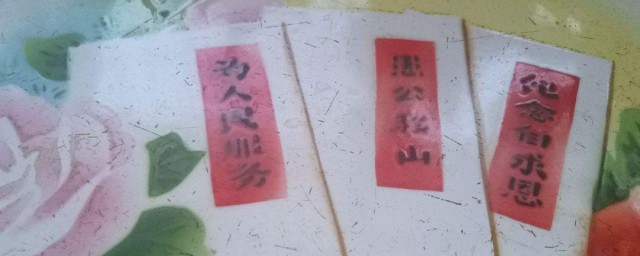 为人民服务
愚公移山
纪念白求恩